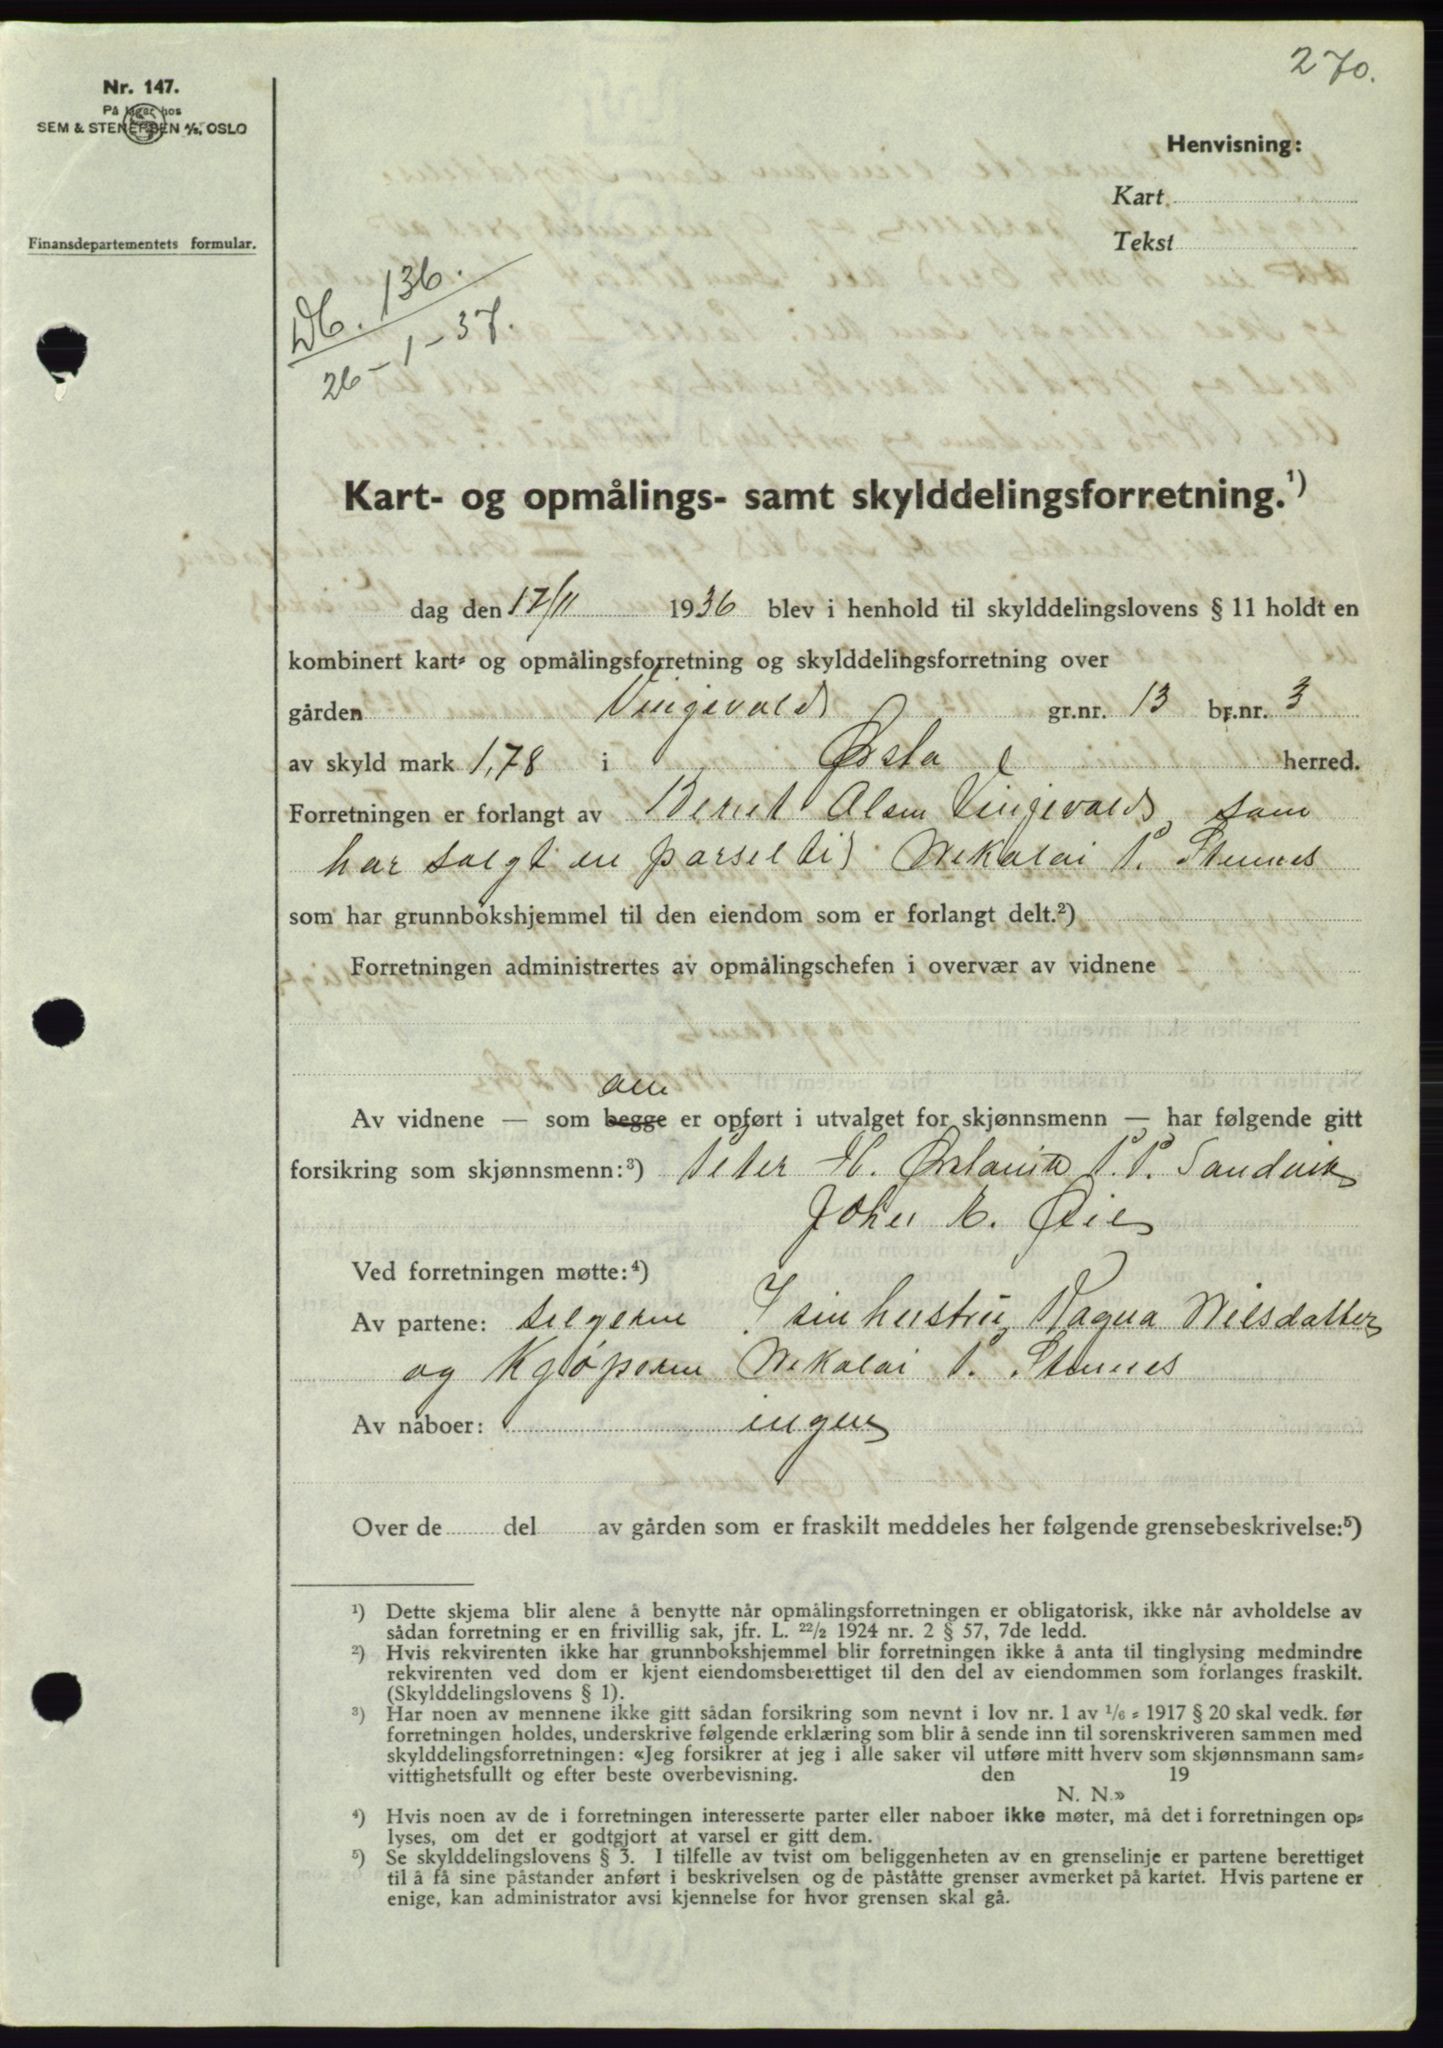 270.
Nr. 147.
På lager hos
SEM & STENERSEN A/S, OSLO
Henvisning:
Kart
Tekst
Finansdepartementets formular.
Db. 136.
26-1-37.
Kart- og opmålings- samt skylddelingsforretning.¹)
dag den 17/11 1936 blev i henhold til skylddelingslovens § 11 holdt en
kombinert kart- og opmålingsforretning og skylddelingsforretning over
gården Vingevold gr.nr. 13 br.nr. 3
av skyld mark 1,78 i Ørsta herred.
Forretningen er forlangt av Bernt Olsen Vingevold, som
har solgt en parsel til Nekolai P. Stennes
som har grunnbokshjemmel til den eiendom som er forlangt delt.²)
Forretningen administrertes av opmålingschefen i overvær av vidnene
alle
Av vidnene — som begge er opført i utvalget for skjønnsmenn — har følgende gitt
forsikring som skjønnsmenn:³) Peter H. Ørstavik P. P. Sandvik
John E. Øie
Ved forretningen møtte:⁴)
Av partene: selgerne hustru Ragna Nilsdatter
og Kjøperen Nekolai P. Stennes
Av naboer: ingen
Over de del av gården som er fraskilt meddeles her følgende grensebeskrivelse:⁵)
¹) Dette skjema blir alene å benytte når opmålingsforretningen er obligatorisk, ikke når avholdelse av
sådan forretning er en frivillig sak, jfr. L. 22/2 1924 nr. 2 § 57, 7de ledd.
²) Hvis rekvirenten ikke har grunnbokshjemmel blir forretningen ikke å anta til tinglysing medmindre
rekvirenten ved dom er kjent eiendomsberettiget til den del av eiendommen som forlanges fraskilt.
(Skylddelingslovens § 1).
³) Har noen av mennene ikke gitt sådan forsikring som nevnt i lov nr. 1 av 1/6 - 1917 § 20 skal vedk. før
forretningen holdes, underskrive følgende erklæring som blir å sende inn til sorenskriveren sammen med
skylddelingsforretningen: «Jeg forsikrer at jeg i alle saker vil utføre mitt hverv som skjønnsmann sam-
vittighetsfullt og efter beste overbevisning. den 19
N. N.»
⁴) Hvis noen av de i forretningen interesserte parter eller naboer ikke møter, må det i forretningen op-
lyses, om det er godtgjort at varsel er gitt dem.
⁵) Se skylddelingslovens § 3. I tilfelle av tvist om beliggenheten av en grenselinje er partene berettiget
til å få sine påstander anført i beskrivelsen og de påståtte grenser avmerket på kartet. Hvis partene er
enige, kan administrator avsi kjennelse for hvor grensen skal gå.